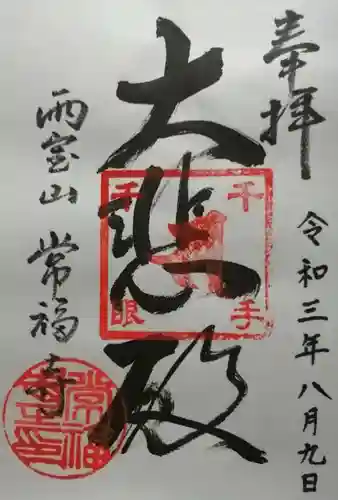 奉拝
令和三年八月九日
大悲殿
千手
千眼
雨宝山
常福寺
常福
寺宝印